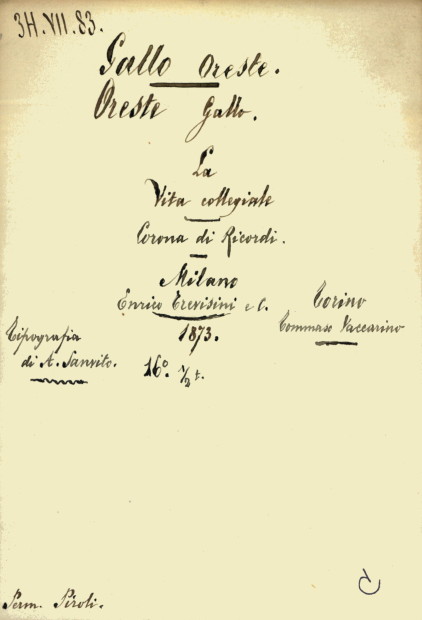 3H.VII.83.
Gallo Oreste.
Oreste Gallo.
La
Vita collegiale
Corona di Ricordi.
Milano
Enrico Trevisini e C.
Torino
Tommaso Vaccarino
1873.
Tipografia
di A. Sanvito.
16° 1/2 t.
Perm. Piroli.